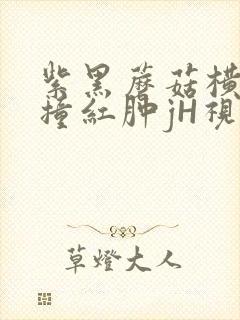 紫黑蘑菇横
撞紅肿jH視
草燈大人